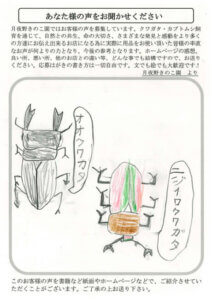 あなた様の声をお聞かせください
月夜野きのこ園ではお客様の声を募集しています。クワガタ・カブトムシ飼
育を通じて、自然との共生、命の大切さ、さまざまな発見と感動をより多く
の方達にお伝え出来るお店になる為に実際に用品をお使い頂いた皆様の率直
なお声が何よりの力となり、今後の参考となります。ホームページの感想、
良い所、悪い所、他のお店との違い等、どんな事でも結構ですので、お送り
ください。応募はがきの書き方は一切自由です。文でも絵でも大歓迎です!
月夜野きのこ園 より
オオクワガタ
ニジイロクワガタ
このお客様の声を書籍など紙面やホームページなどで、ご紹介させていた
だくことがございます。ご了承の上お送り下さい。